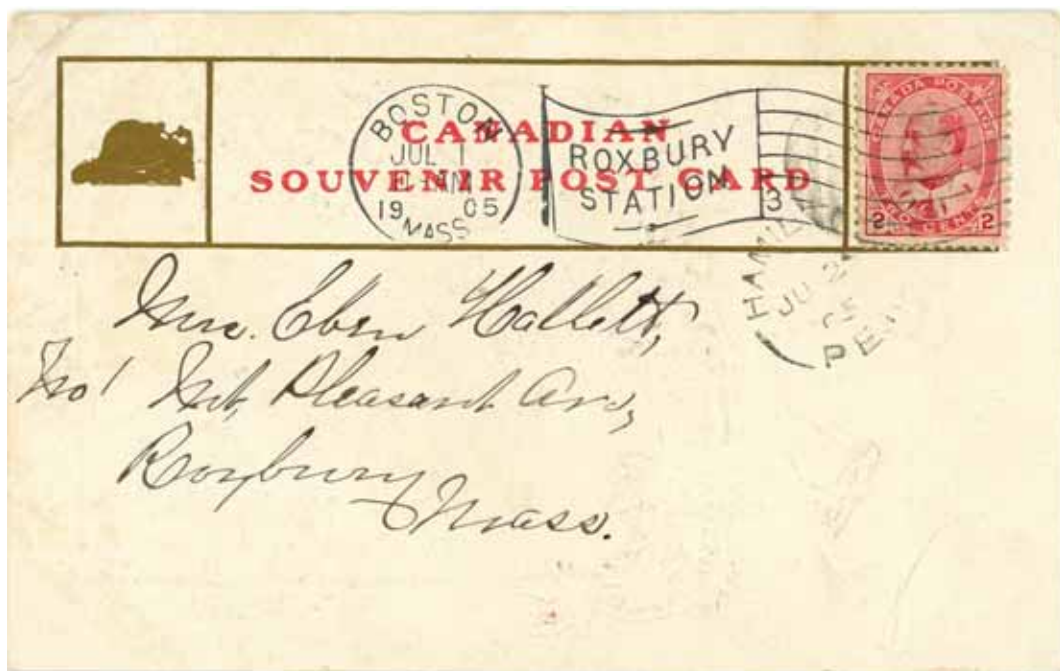 CANADIAN
SOUVENIR POST CARD
BOSTON
JUL 1
19 05
MASS
ROXBURY
STATION
3
CANADA POSTAGE
2 TWO CENTS 2
JU 2
05
Mrs. Eben Hallett,
No 1 Mt, Pleasant Ave,
Roxbury
Mass.